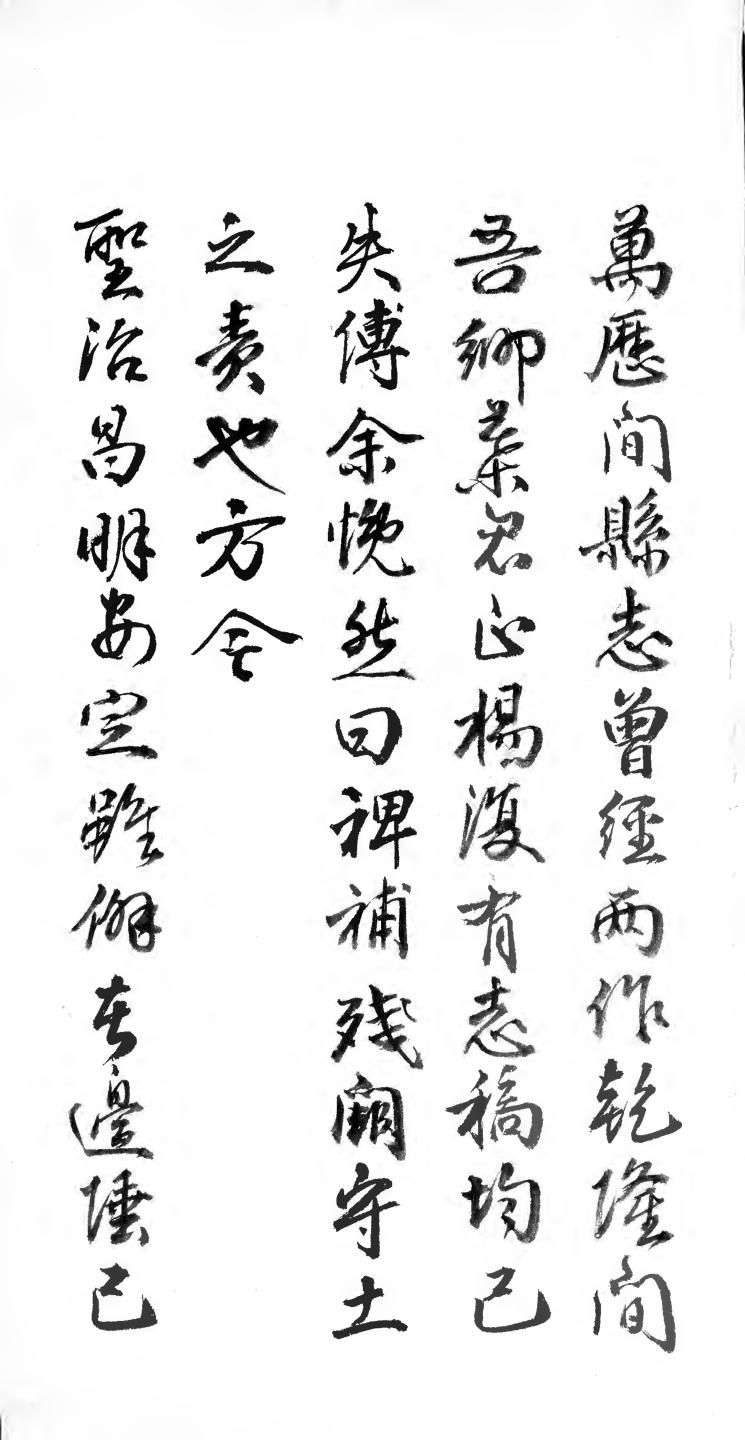 萬歷间縣志曾經两作乾隆间
吾鄉葉君正楊復有志稿均已
失傳余惋然曰裨補殘闕守土
之责也方今
聖治昌明安定雖僻在邊陲已